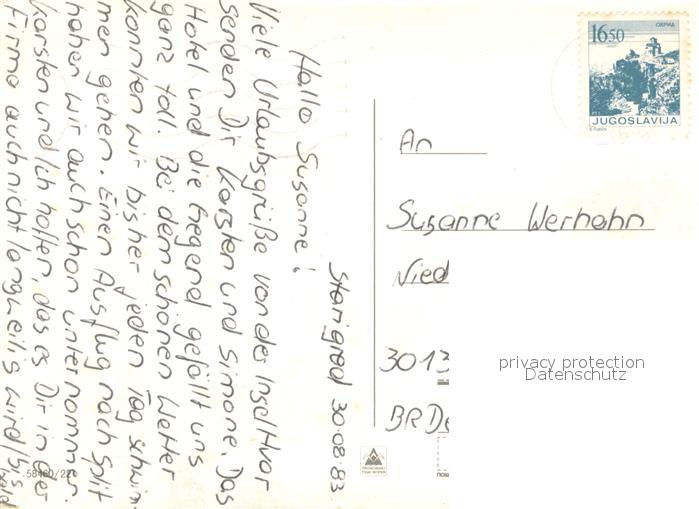 Starigrad 30.08.83
Hallo Susanne!
Viele Urlaubsgrüße von der Insel Hvar
senden Dir Karsten und Simone. Das
Hotel und die Gegend gefällt uns
ganz toll. Bei dem schönen Wetter
konnten wir bisher jeden Tag schwim
men gehen. Einen Ausflug nach Split
haben wir auch schon unternommen.
Karsten und Ich hoffen, das es Dir in der
Firma auch nicht langweilig wird/bis
bald
58480/22c
ОХРИД
16.50
JUGOSLAVIJA
An
Susanne Werhahn
Nied
3013
BR De
privacy protection
Datenschutz